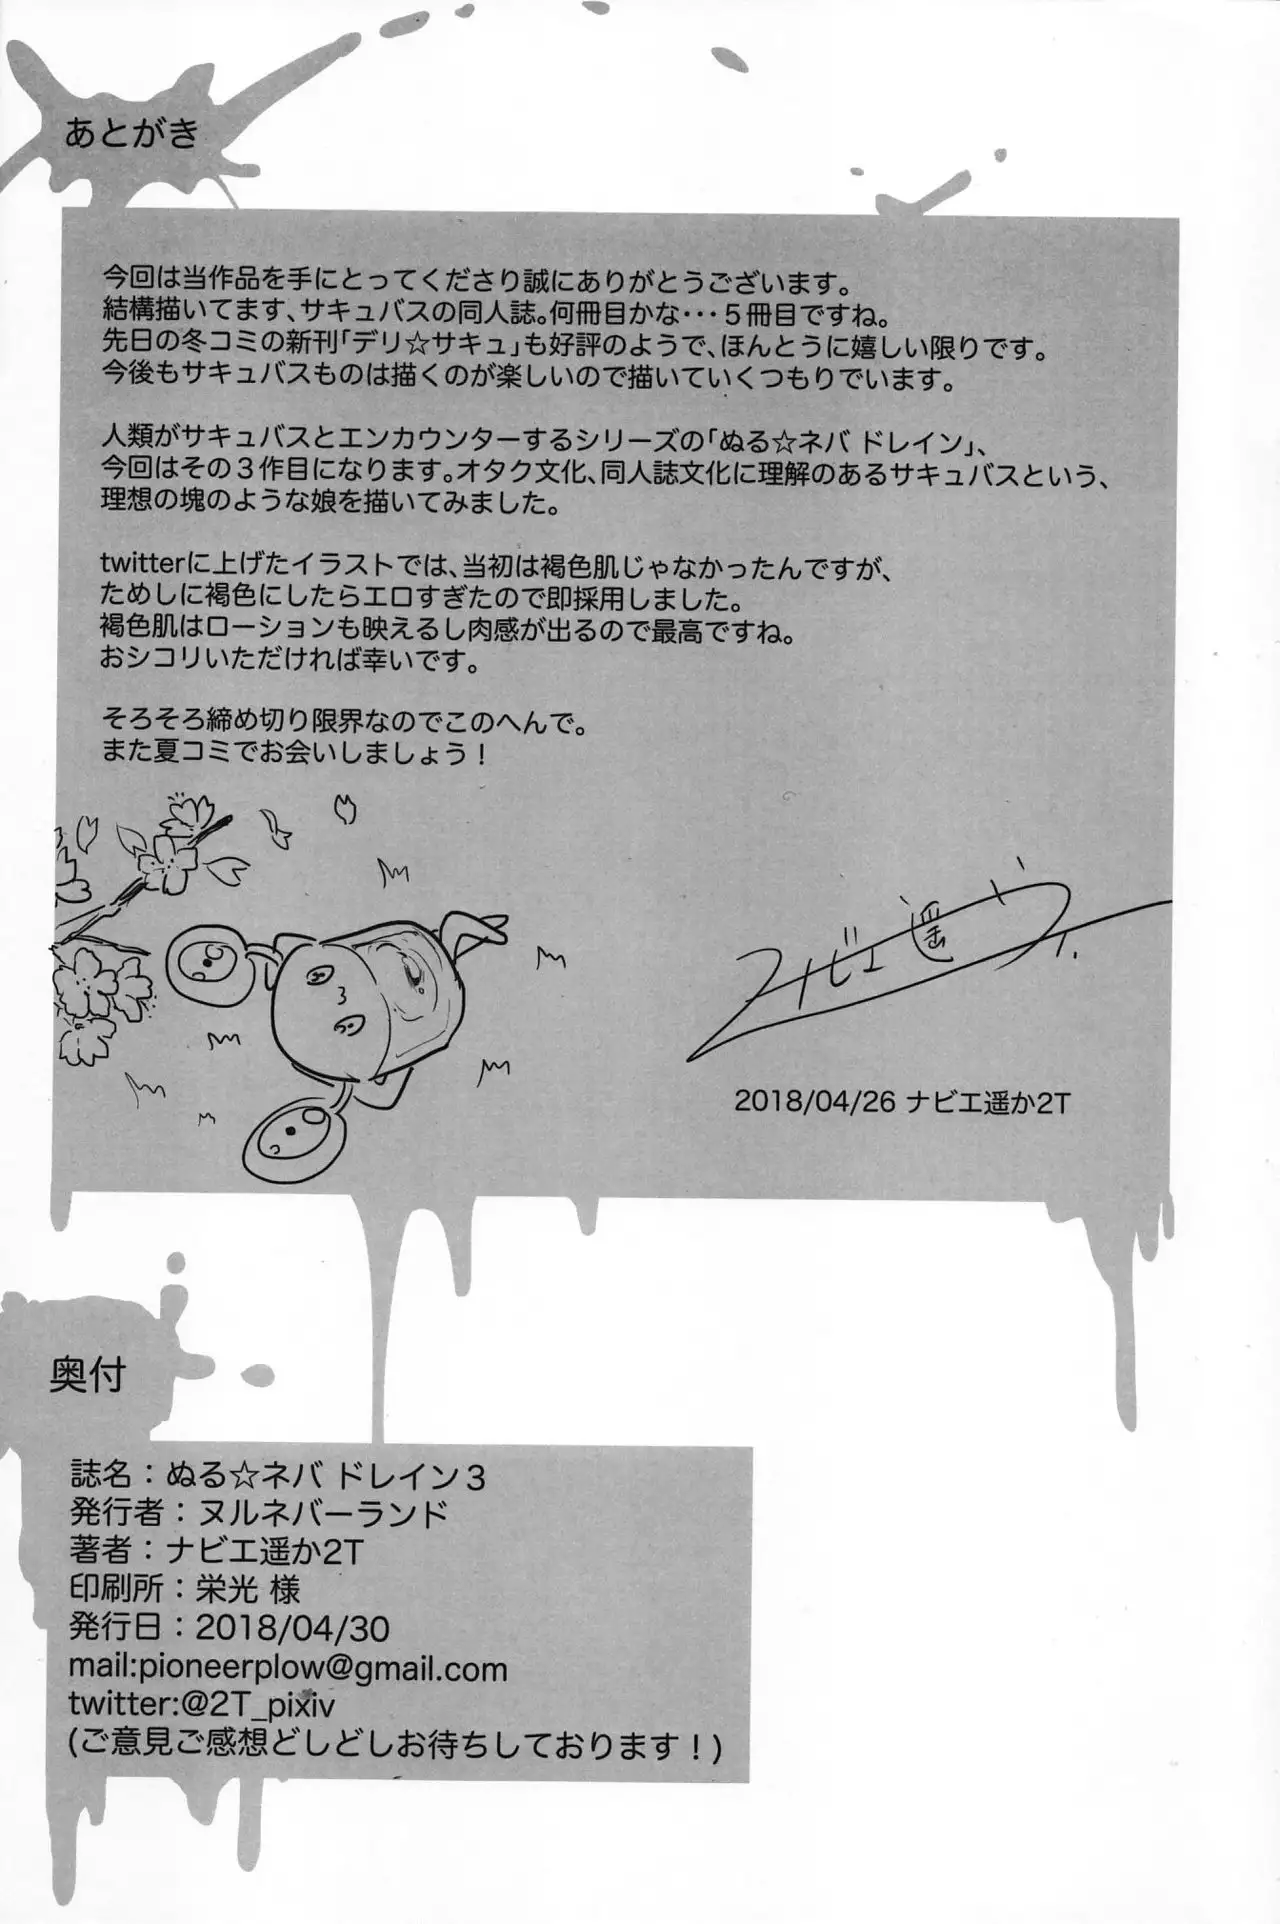 あとがき
今回は当作品を手にとってくださり誠にありがとうございます。
結構描いてます、サキュバスの同人誌。何冊目かな・・・5冊目ですね。
先日の冬コミの新刊「デリ☆サキュ」も好評のようで、ほんとうに嬉しい限りです。
今後もサキュバスものは描くのが楽しいので描いていくつもりでいます。
人類がサキュバスとエンカウンターするシリーズの「ぬる☆ネバ ドレイン」、
今回はその3作目になります。オタク文化、同人誌文化に理解のあるサキュバスという、
理想の塊のような娘を描いてみました。
twitterに上げたイラストでは、当初は褐色肌じゃなかったんですが、
ためしに褐色にしたらエロすぎたので即採用しました。
褐色肌はローションも映えるし肉感が出るので最高ですね。
おシコリいただければ幸いです。
そろそろ締め切り限界なのでこのへんで。
また夏コミでお会いしましょう！
ナビエ遥か2T
2018/04/26 ナビエ遥か2T
奥付
誌名：ぬる☆ネバ ドレイン3
発行者：ヌルネバーランド
著者：ナビエ遥か2T
印刷所：栄光 様
発行日：2018/04/30
mail:pioneerplow@gmail.com
twitter:@2T_pixiv
(ご意見ご感想どしどしお待ちしております！)